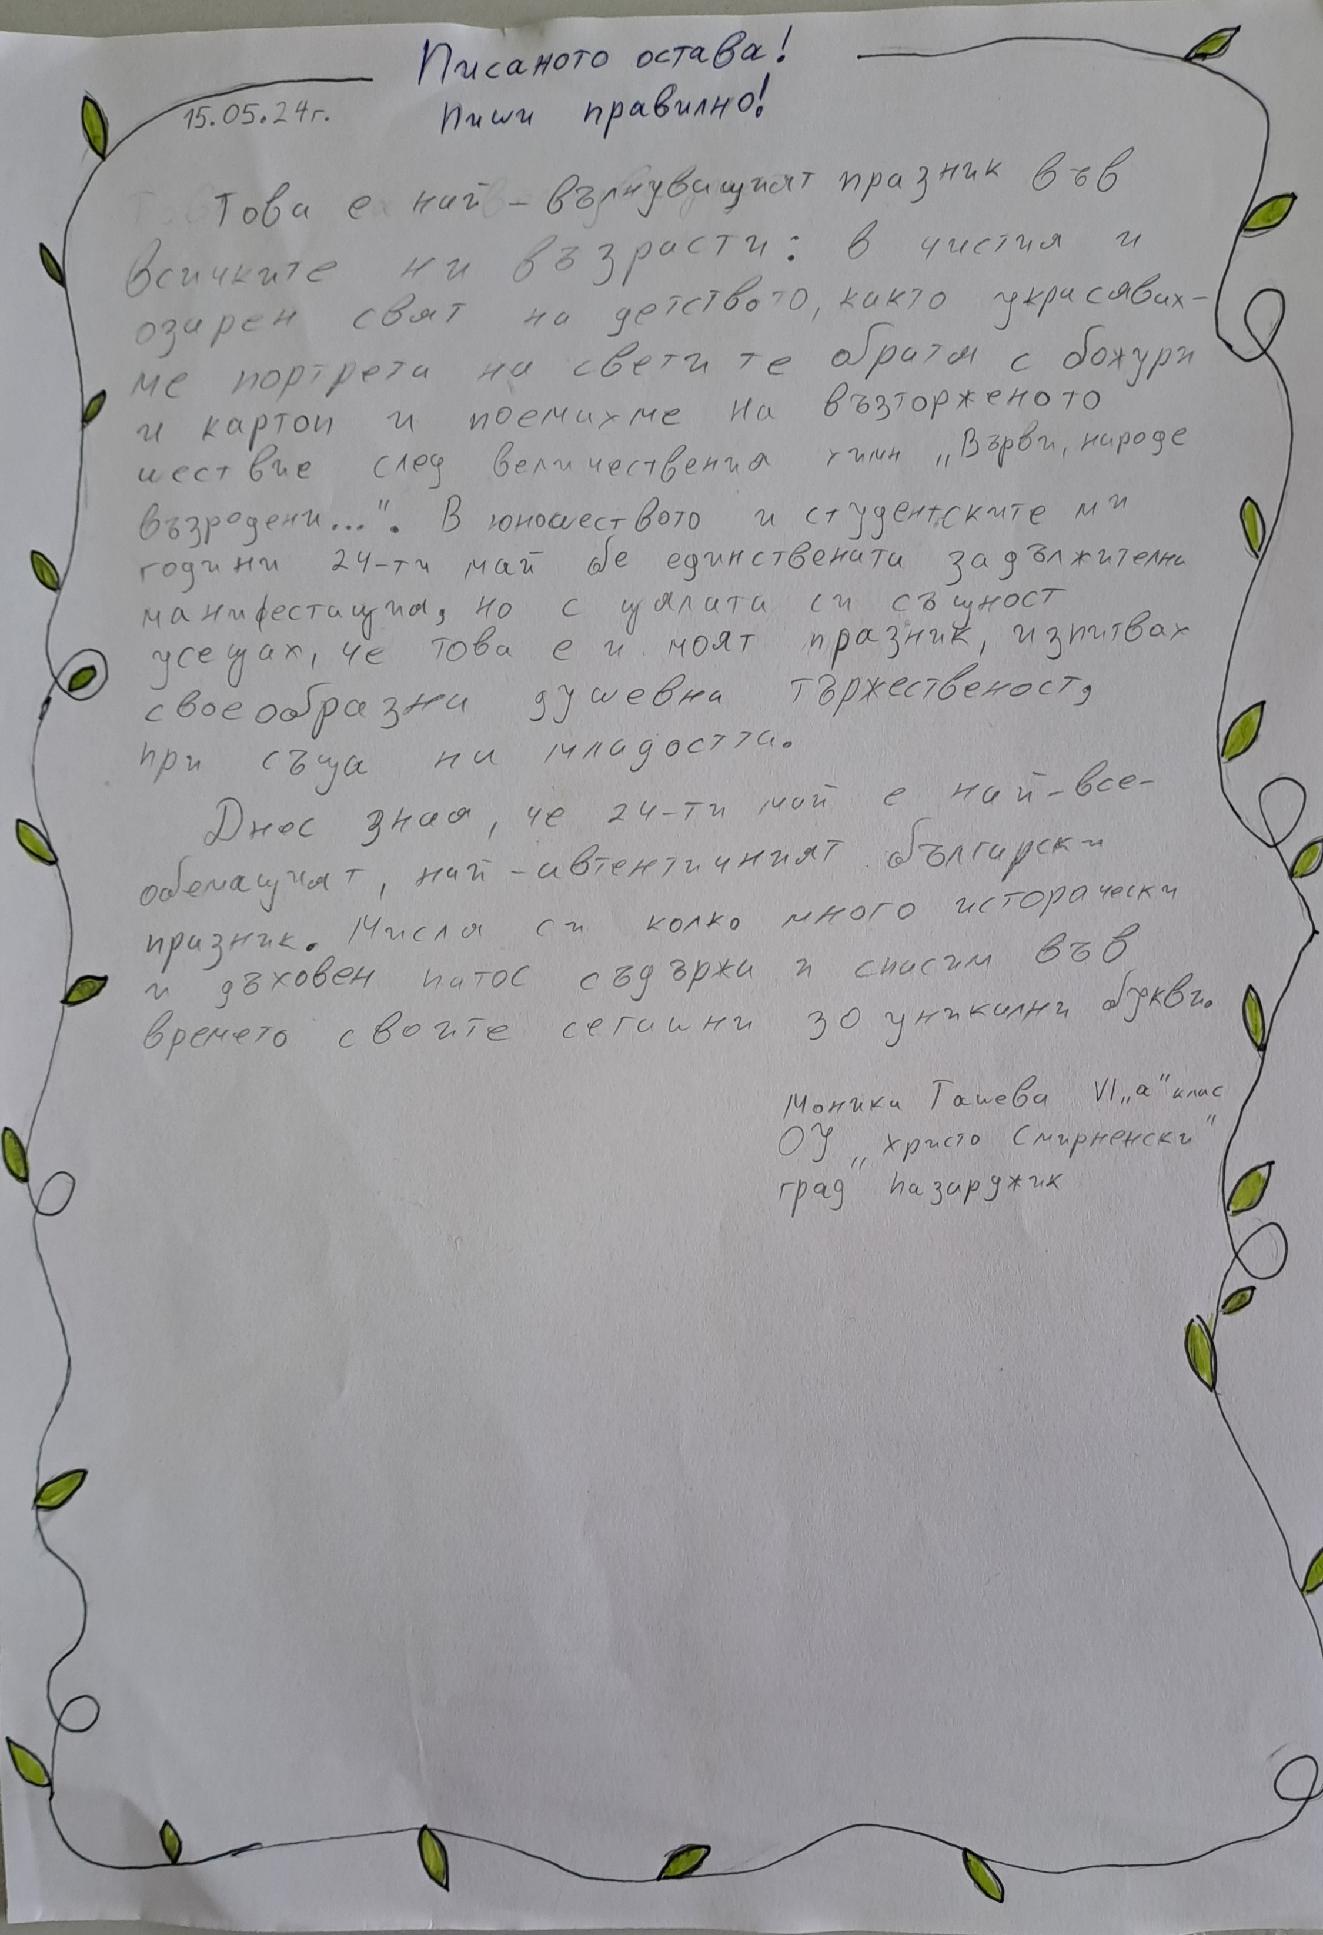 Писаното остава!
Пиши правилно!
15.05.24г.
Това е най-вълнуващият празник във
всичките ни възрасти: в чистия и
озарен свят на детството, както украсявах-
ме портрета на светите братя с божури
и картон и поемахме на възторженото
шествие след величествения химн „Върви, народе
възродени...". В юношеството и студентските ми
години 24-ти май бе единствената задължителна
манифестация, но с цялата си същност
усещах, че това е и моят празник, изпитвах
своеобразна душевна тържественост,
при съща на младостта.
Днес зная, че 24-ти май е най-все-
обемащият, най-автентичният български
празник. Мисля си колко много исторически
и дъховен патос съдържа и спасим във
времето своите сегашни 30 уникални букви.
Моника Ташева VI „а" клас
ОУ „Христо Смирненски"
град Пазарджик